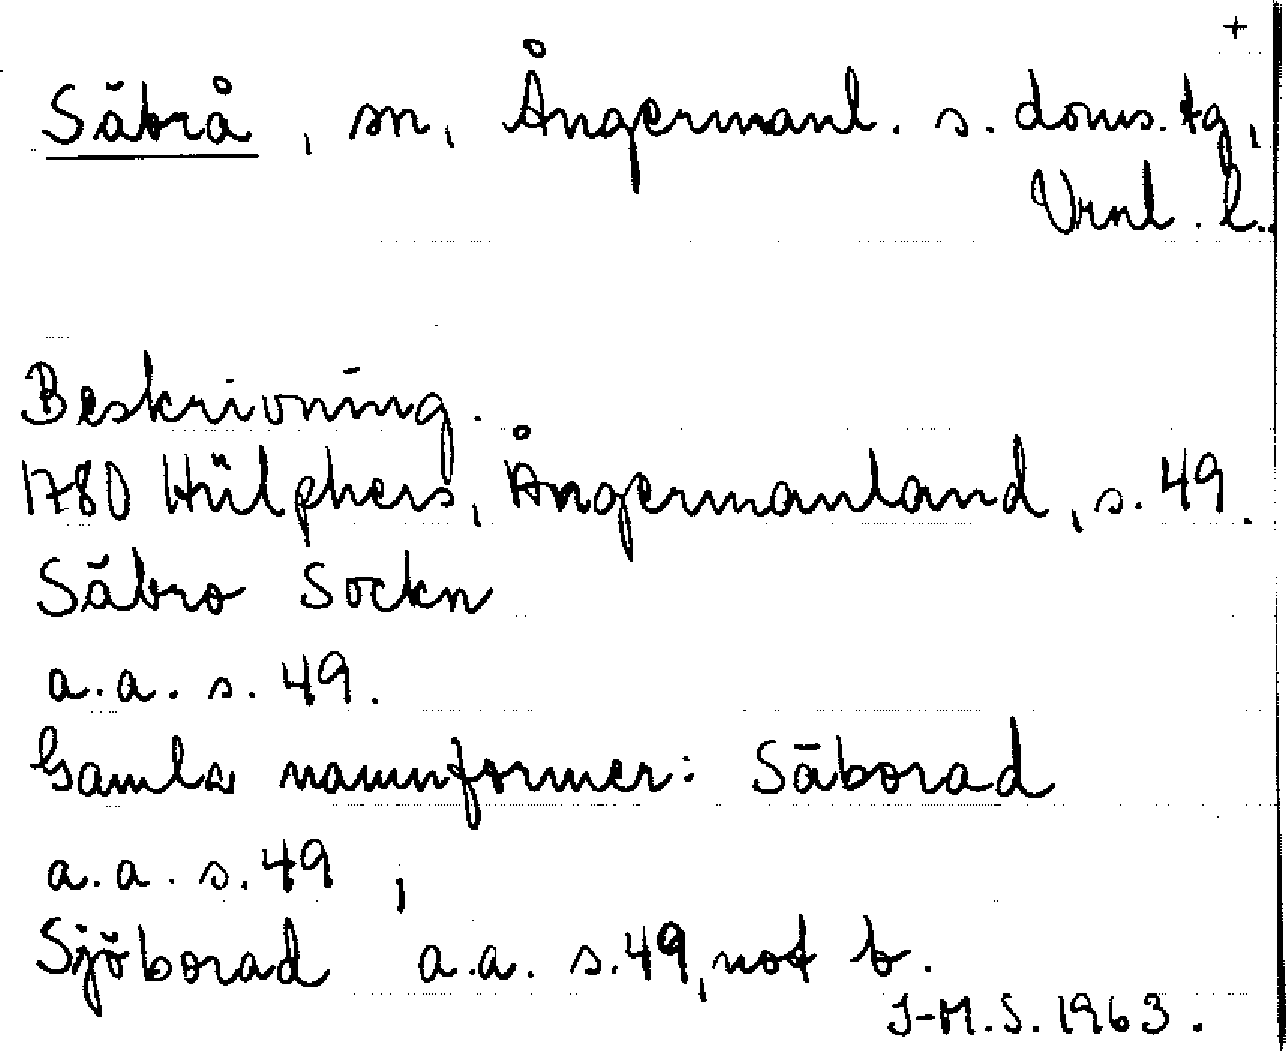 +
Säbrå, sn, Ångermanl. s. doms. tg,
Vrnl. l.
Beskrivning.
1780 Hülphers, Ångermanland, s. 49.
Säbro Sockn
a.a. s. 49.
Gamla namnformer: Säborad
a.a. s. 49,
Sjöborad a.a. s. 49, not b.
J-M.S. 1963.